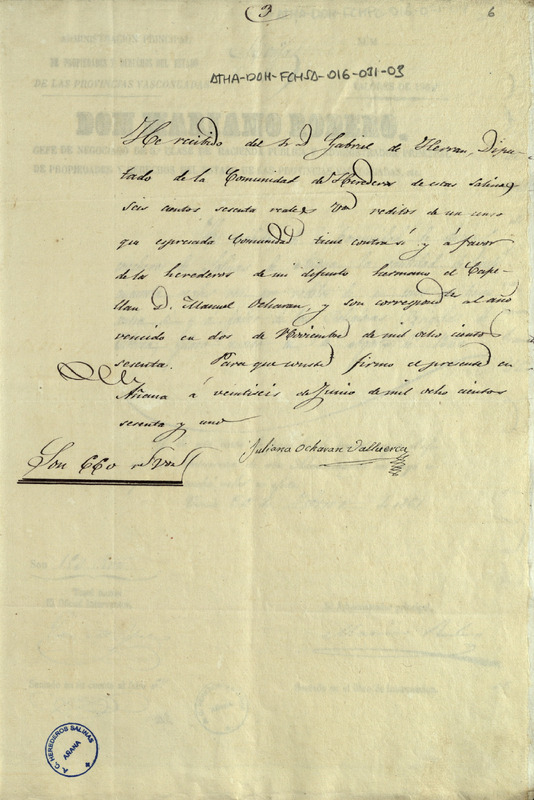 3
6
ATHA-DOH-FCHSA-016-031-03
He recibido del Sr. D Gabriel de Herran, Dipu-
tado de la Comunidad de Herederos de estas Salinas
seis cientos sesenta reales Von reditos de un censo
que espresada Comunidad tiene contra sí y á favor
de la herederos de mi difunto hermano el Cape-
llan D. Manuel Ocharan, y son correspondte al año
vencido en dos de Noviembre de mil ocho cientos
sesenta. Para que conste firmo el presente en
Añana á veintiseis de Junio de mil ocho cientos
sesenta y uno
Juliana Ocharan Valluerca
Son 660 rs Von
A. C. HEREDEROS SALINAS
AÑANA